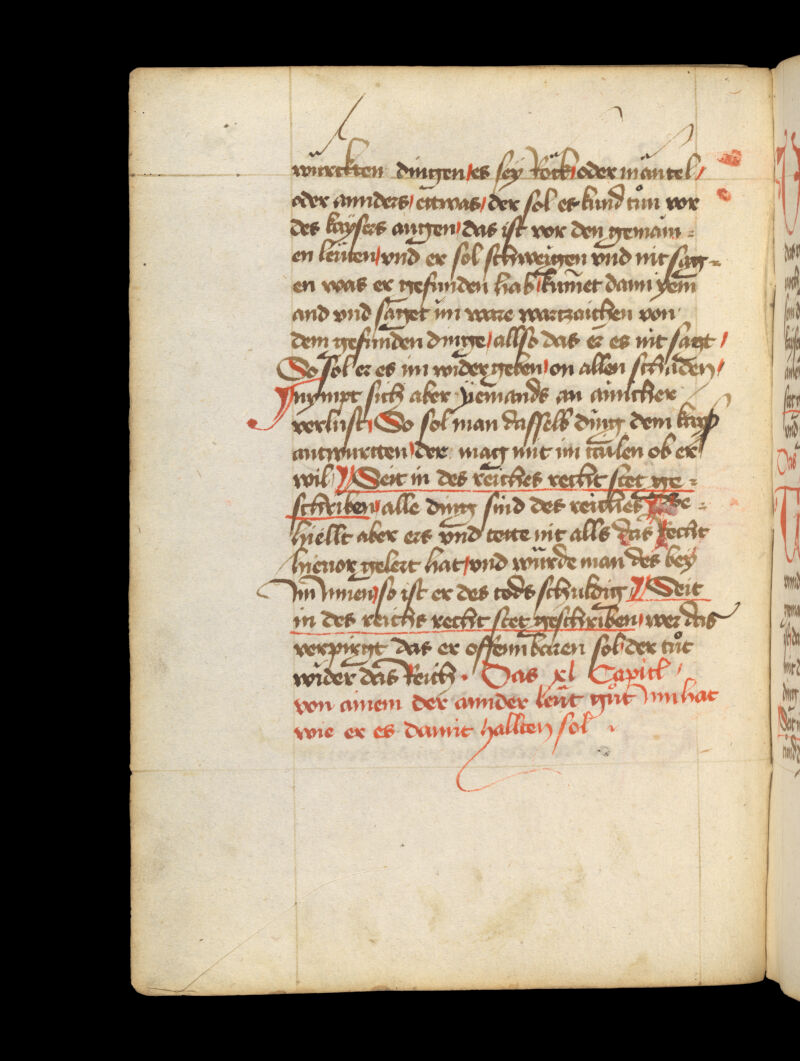 würckten dingen / es sey Röck / oder mäntel /
oder annders / ettwas / der sol es kund tůn vor
des kaÿsers augen / das ist vor den gemain=
en leüten / vnd er sol schweigen vnd nit sag=
en was er gefunden hab / kumet dann yem
and vnd saget im ware wartzaichen von
dem gefunden dinge / allso das er es nit sagt /
So sol er es im wider geben / on allen schäden /
Nympt sich aber yemands an ainicher
verlust / So sol man dasselb ding dem kays
antwurtten / der mag mit im tailen ob er
wil / Seit in des reiches recht stet ge=
schriben / alle ding sind des reiches Be=
hiellt aber ers vnd tette nit alls das Recht
hieuor gelert hat / vnd würde man des bey
Im Innen / so ist er des tods schuldig / Seit
in des reichs recht stet geschriben / wer das
verpirgt das er offennbaren sol / der tůt
wider das Reich . Das xl Capitl /
von ainem der annder leüt gůt Inn hat
wie er es damit hallten sol .